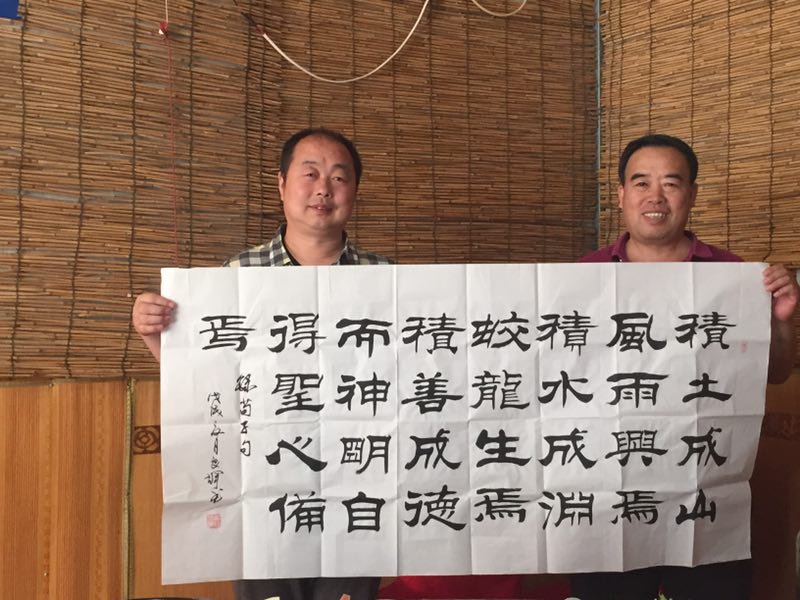 積土成山
風雨興焉
積水成淵
蛟龍生焉
積善成德
而神明自
得聖心備
焉
錄荀子句
戊戌年月